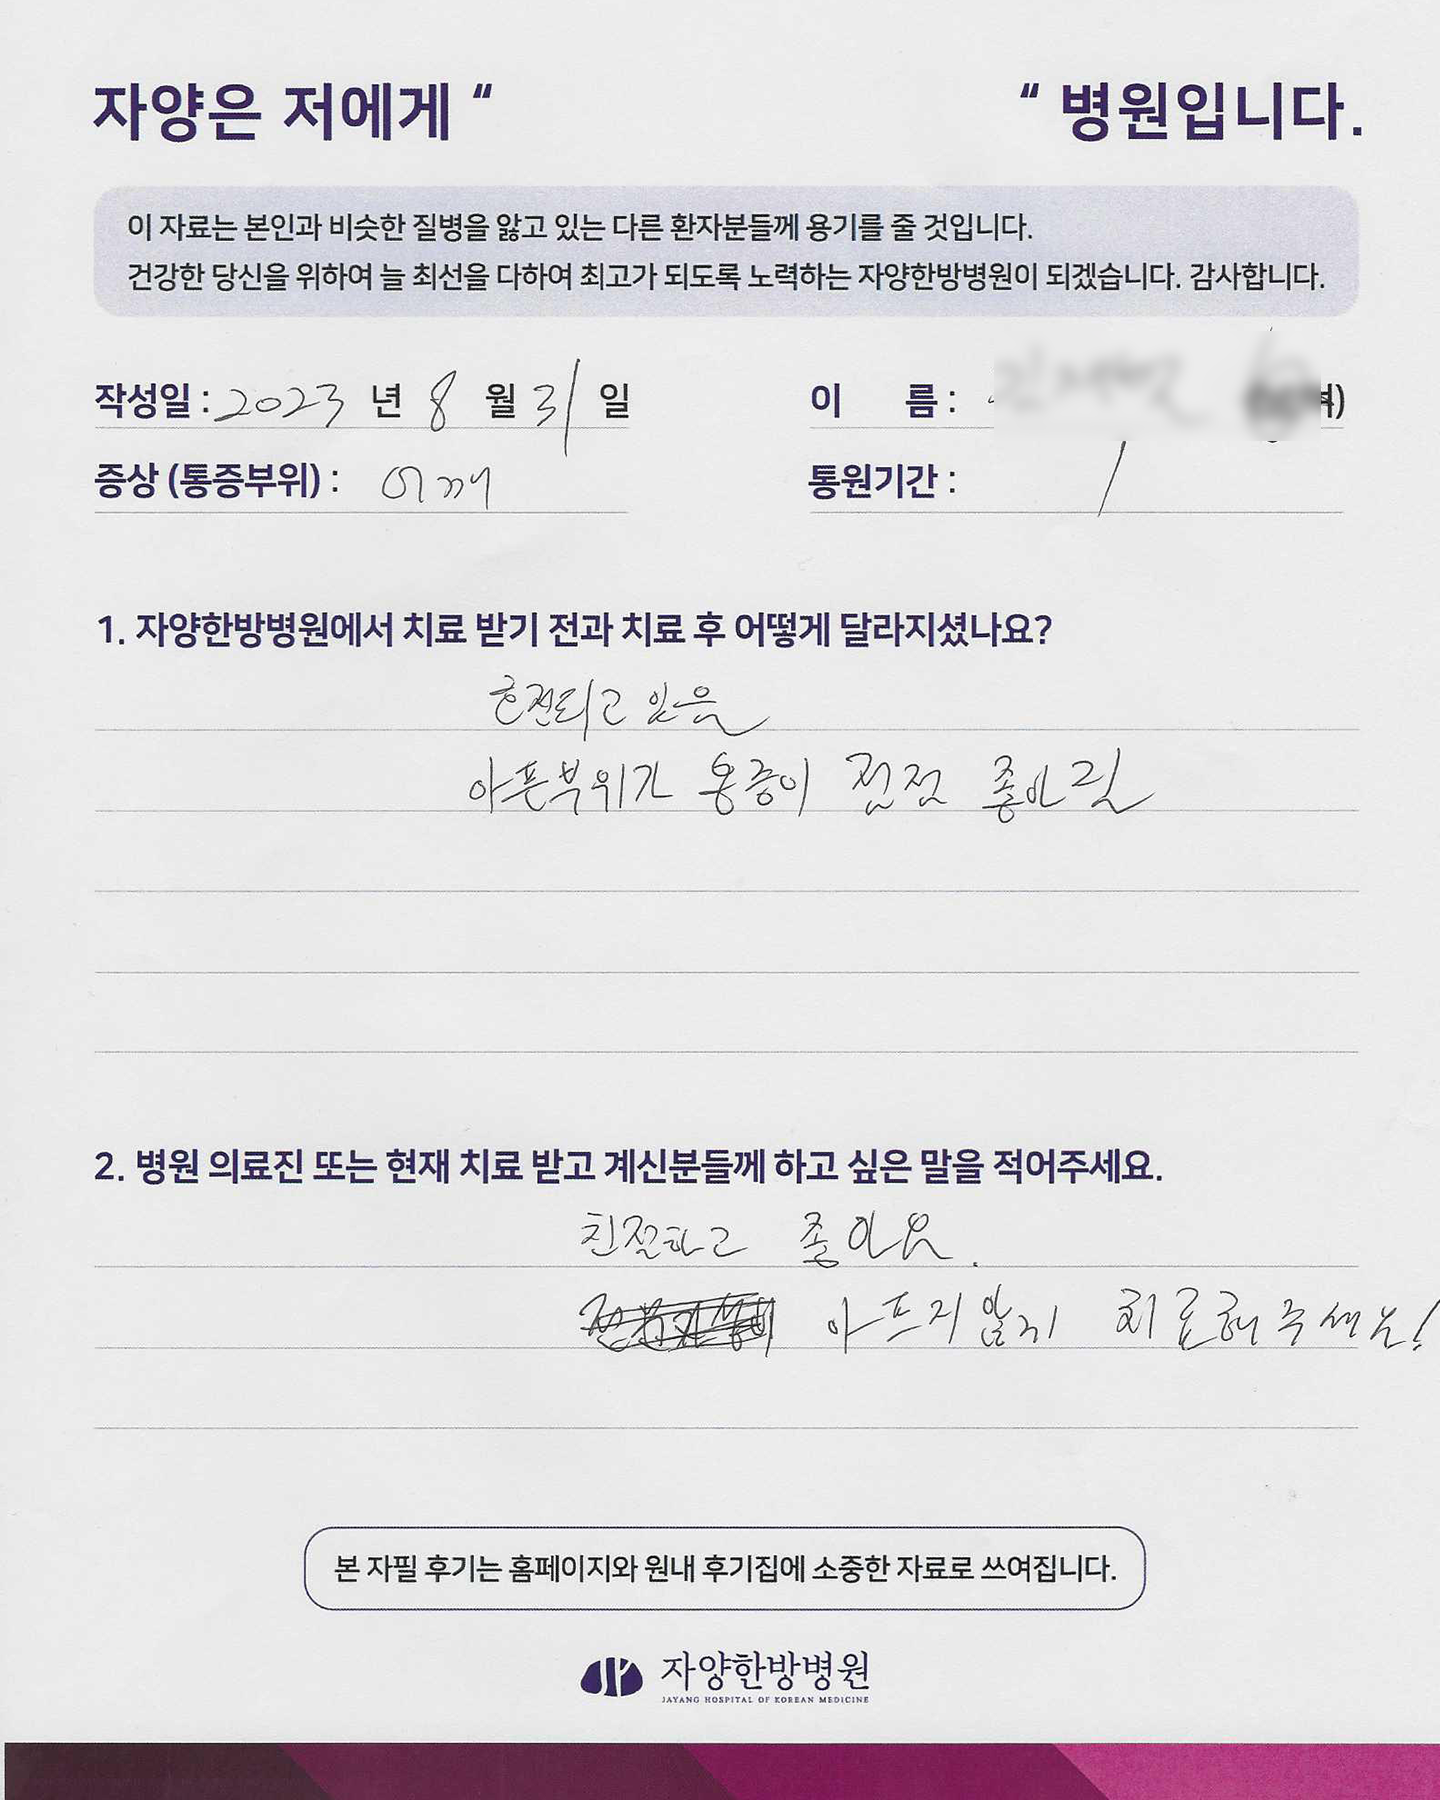 자양은 저에게 “ “ 병원입니다.
이 자료는 본인과 비슷한 질병을 앓고 있는 다른 환자분들께 용기를 줄 것입니다.
건강한 당신을 위하여 늘 최선을 다하여 최고가 되도록 노력하는 자양한방병원이 되겠습니다. 감사합니다.
작성일 : 2023 년 8 월 31 일 이 름 :
증상 (통증부위) : 어깨 통원기간 : /
1. 자양한방병원에서 치료 받기 전과 치료 후 어떻게 달라지셨나요?
호전되고 있음
아픈부위가 통증이 점점 좋아짐
2. 병원 의료진 또는 현재 치료 받고 계신분들께 하고 싶은 말을 적어주세요.
친절하고 좋아요.
아프지않게 치료해주세요!
본 자필 후기는 홈페이지와 원내 후기집에 소중한 자료로 쓰여집니다.
자양한방병원
JAYANG HOSPITAL OF KOREAN MEDICINE